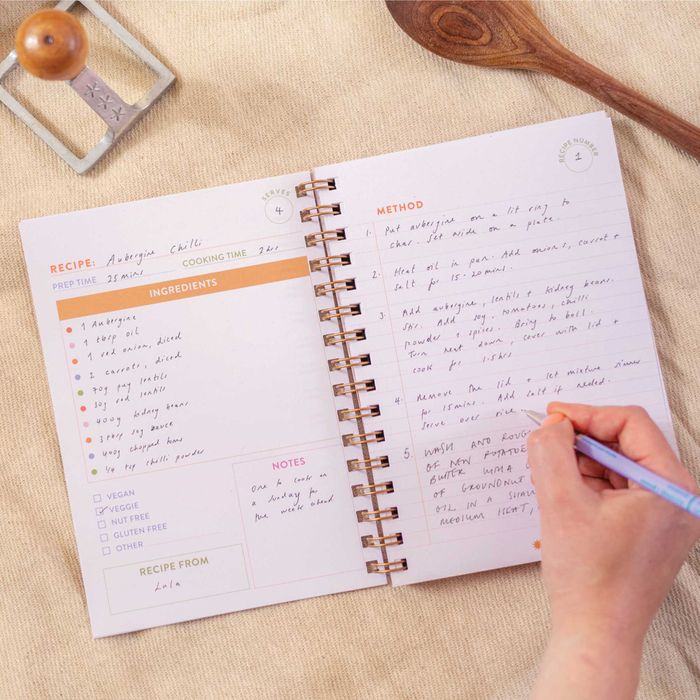 SERVES
4
RECIPE: Aubergine Chilli
PREP TIME 25 mins COOKING TIME 2 hrs
INGREDIENTS
1 Aubergine
1 tbsp oil
1 red onion, diced
2 carrots, diced
70g puy lentils
30g red lentils
400g kidney beans
3 tbsp soy sauce
400g chopped toms
1/4 tsp chilli powder
VEGAN
VEGGIE
NUT FREE
GLUTEN FREE
OTHER
NOTES
One to cook on
a Sunday for
the week ahead
RECIPE FROM
Lula
RECIPE NUMBER
1
METHOD
1. Put aubergine on a lit ring to
char. Set aside on a plate.
2. Heat oil in pan. Add onions, carrot +
salt for 15-20mins.
3. Add aubergine, lentils + kidney beans.
Stir. Add soy, tomatoes, chilli
powder + spices. Bring to boil.
Turn heat down, cover with lid +
cook for 1.5hrs
4. Remove the lid + let mixture simmer
for 15mins. Add salt if needed.
Serve over rice
5. WASH AND
OF NEW
BUTTER WITH A
OF GROUNDNUT
OIL IN A
MEDIUM HEAT,